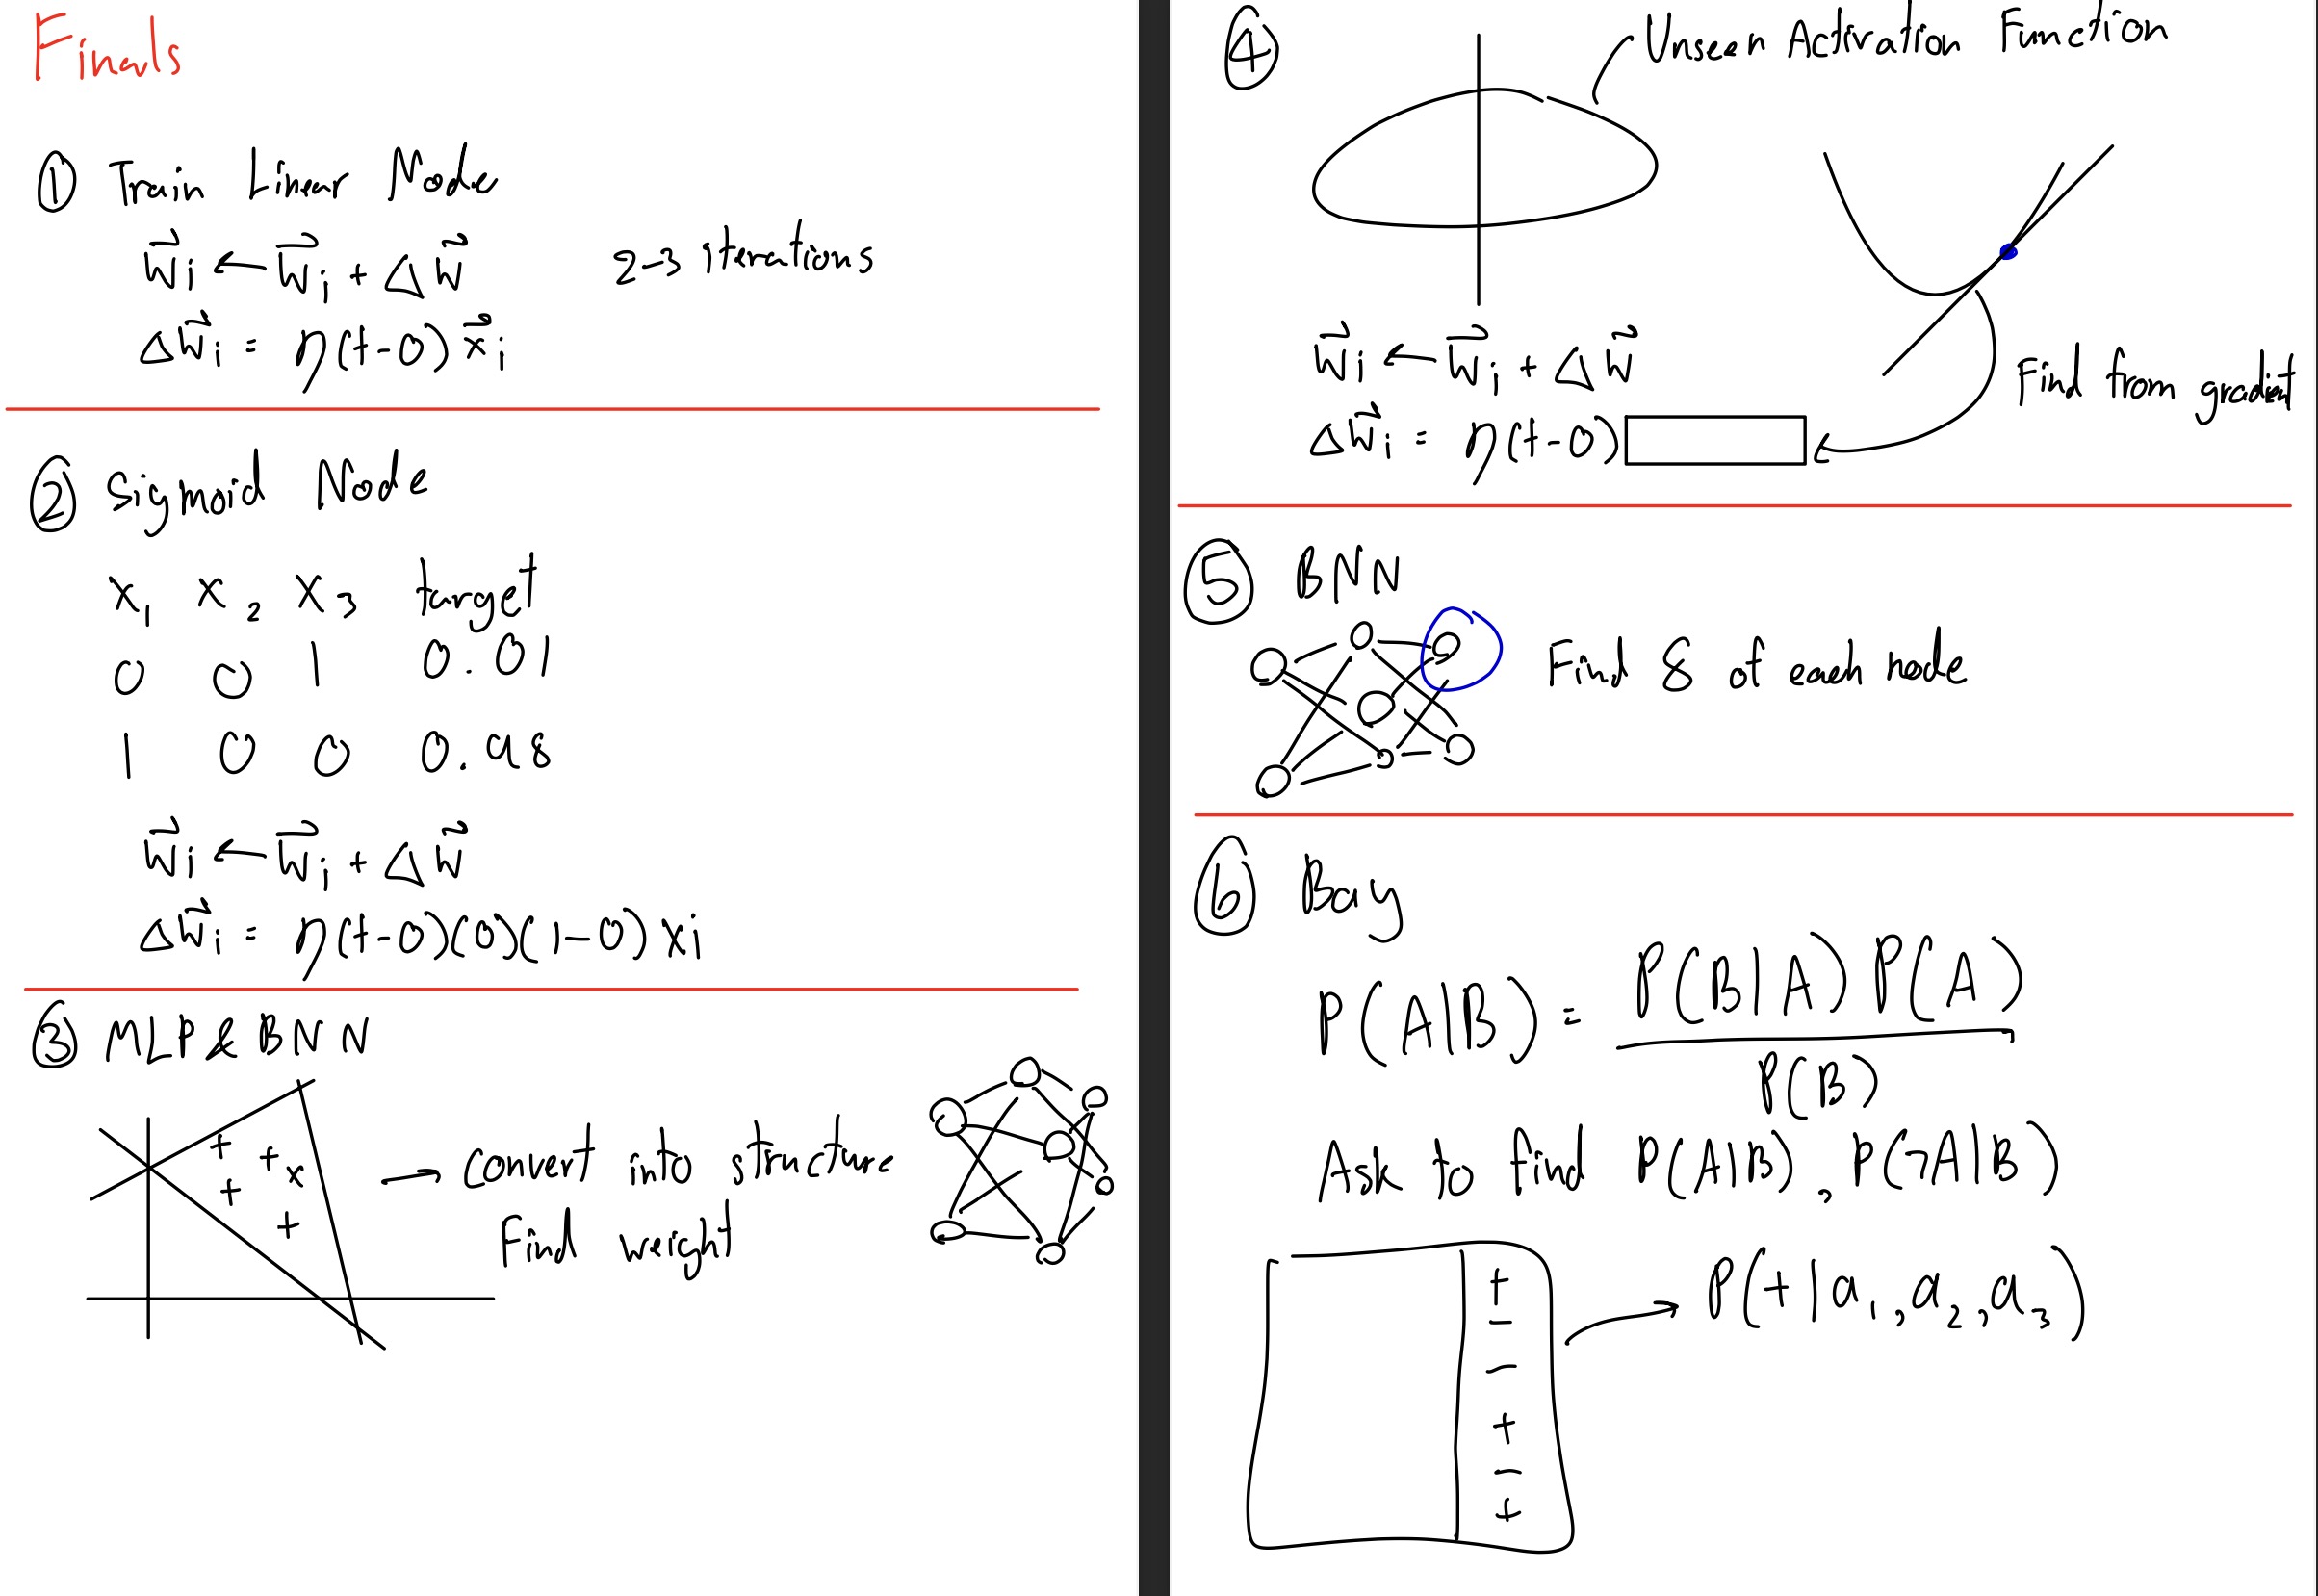 Finals
① Train Linear Node
w⃗i ← w⃗i + Δw⃗
2-3 iterations
Δw⃗i = η(t-0)x⃗i
② Sigmoid Node
x₁ x₂ x₃ target
0 0 1 0.01
1 0 0 0.98
w⃗i ← w⃗i + Δw⃗
Δw⃗i = η(t-0)(0)(1-0)xi
③ MLP & BNN
+ + x
+
+
→ Convert into structure
Find weight
④
Unseen Activation Function
w⃗i ← w⃗i + Δw⃗
Δw⃗i = η(t-0)
Find from gradient
⑤ BNN
Find 8 of each node
⑥ Bay
P(A|B) = P(B|A)P(A)
P(B)
Ask to find P(A|B), P(¬A|B)
+
-
-
+
-
+
→ P(+|a₁,a₂,a₃)